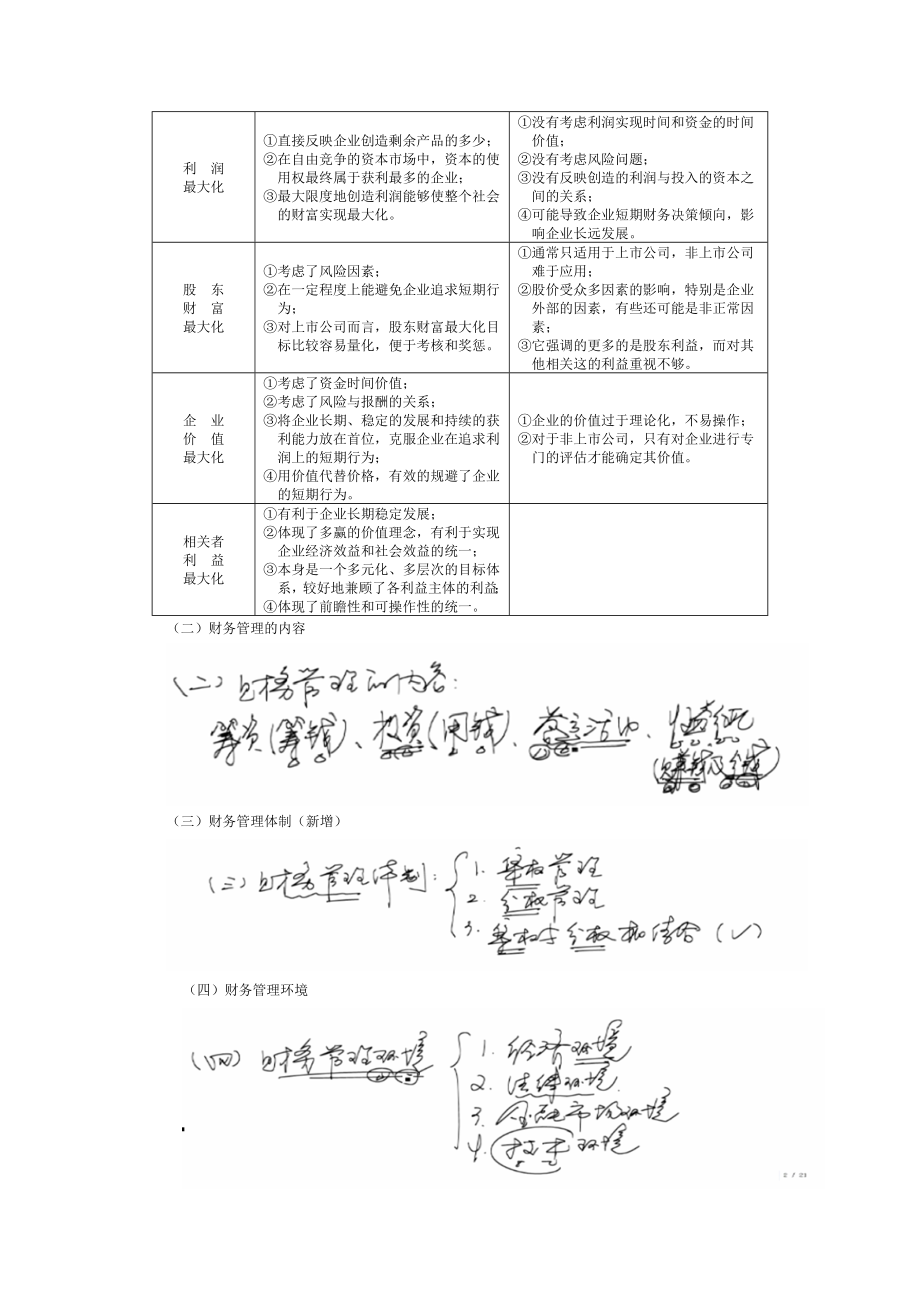 利 润
最大化
①直接反映企业创造剩余产品的多少；
②在自由竞争的资本市场中，资本的使
用权最终属于获利最多的企业；
③最大限度地创造利润能够使整个社会
的财富实现最大化。
①没有考虑利润实现时间和资金的时间
价值；
②没有考虑风险问题；
③没有反映创造的利润与投入的资本之
间的关系；
④可能导致企业短期财务决策倾向，影
响企业长远发展。
股 东
财 富
最大化
①考虑了风险因素；
②在一定程度上能避免企业追求短期行
为；
③对上市公司而言，股东财富最大化目
标比较容易量化，便于考核和奖惩。
①通常只适用于上市公司，非上市公司
难于应用；
②股价受众多因素的影响，特别是企业
外部的因素，有些还可能是非正常因
素；
③它强调的更多的是股东利益，而对其
他相关这的利益重视不够。
企 业
价 值
最大化
①考虑了资金时间价值；
②考虑了风险与报酬的关系；
③将企业长期、稳定的发展和持续的获
利能力放在首位，克服企业在追求利
润上的短期行为；
④用价值代替价格，有效的规避了企业
的短期行为。
①企业的价值过于理论化，不易操作；
②对于非上市公司，只有对企业进行专
门的评估才能确定其价值。
相关者
利 益
最大化
①有利于企业长期稳定发展；
②体现了多赢的价值理念，有利于实现
企业经济效益和社会效益的统一；
③本身是一个多元化、多层次的目标体
系，较好地兼顾了各利益主体的利益；
④体现了前瞻性和可操作性的统一。
（二）财务管理的内容
（二）财务管理的内容：
筹资（筹钱）、投资（用钱）、营运活动、收益分配
（赚钱及分钱）
（三）财务管理体制（新增）
（三）财务管理体制：
1. 集权管理
2. 分权管理
3. 集权与分权相结合（√）
（四）财务管理环境
（四）财务管理环境
1. 经济环境
2. 法律环境
3. 金融市场环境
4. 技术环境
2 / 21